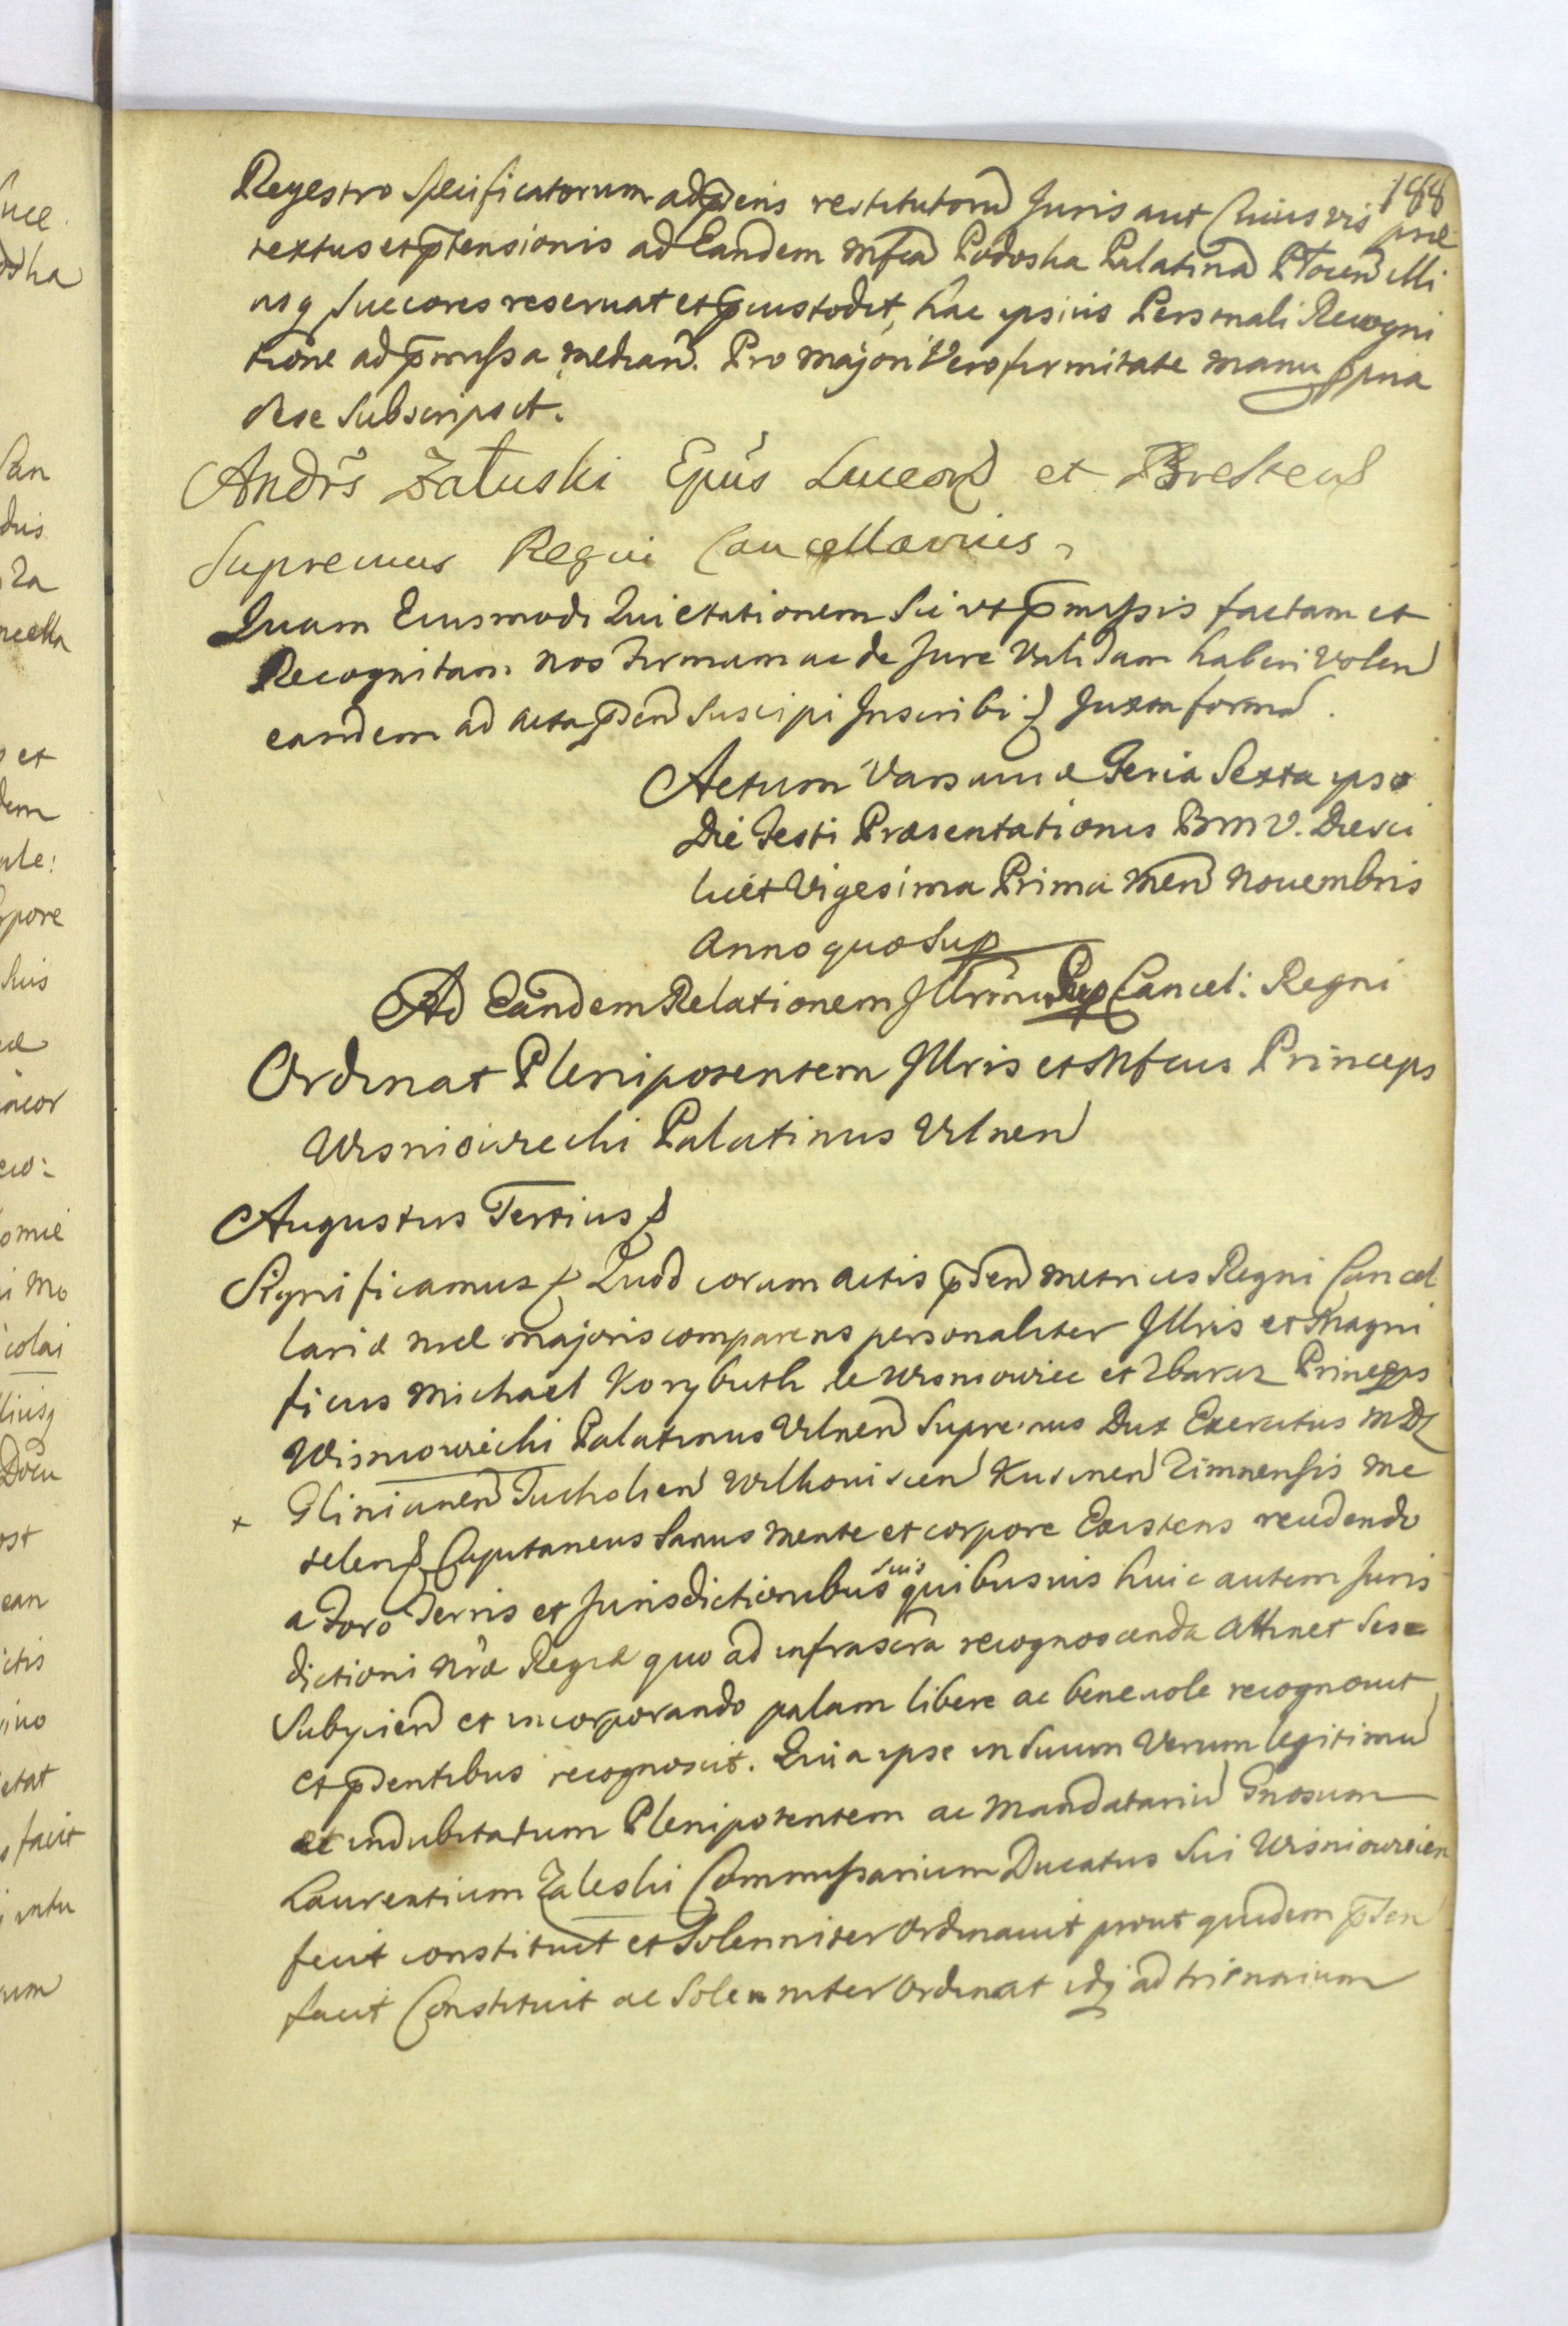 188
Regestro Specificatorum ad p̃ens restitutorũ Juris aut Cuiusvis præ
textus et p̃tensionis ad Eandem Mfcã Podoska Palatinã Ploceñ Illi
usq Succores reseruat et p̃custodit, hac ipsius Personali Recogni
tione ad p̃missa median̄. Pro majori Vero firmitate manu ppria
sese Subscripsit.
Andr̃s Załuski Epũs Luceor et Brestens
Supremus Regni Cancellarius
Quam Eiusmodi Quietationem Sic ut p̃missis factam et
Recognitam nos firmam ac de Jure Validam haberi Volen
eandem ad acta p̃sen Suscipi Inscribi Juxta formã.
Actum Varsauiæ Feria Sexta ipso
Die Festi Præsentationis BMV. Die sci
licet Vigesima Prima Men Nouembris
Anno quo Sup
Ad Eandem Relationem Illrmi Sup Cancel: Regni
Ordinat Plenipotentem Illris et Mfcus Princeps
Wisniowiecki Palatinus Vilnen
Augustus Tertius
Significamus Quod coram actis p̃sen Metrices Regni Cancel
lariæ nræ majoris comparens personaliter Illris et Magni
ficus Michael Korybuth de Wisniowiec et Zbaraz Princeps
Wisniowiecki Palatinus Vilnen Supremus Dux Exercitus MDL
+ Glinianen Tucholien Wilkouiscien Kusinen Zimnensis Me
telens Capitaneus Sanus Mente et corpore Existens recedendo
a Foro Terris et Jurisdictionibus suis quibusuis huic autem Juris
dictioni nr̃æ Regiæ quo ad infrascra recognoscenda Attinet Sese
Subyiciens et incorporando palam libere ac beneuole recognouit
et p̃sentibus recognoscit. Quia ipse in Suum Verum legitimũ
et indubitatum Plenipotentem ac Mandatariũ Gnosum
Laurentium Zaleski Commissarium Ducatus Sui Wisniowiecien
fecit constituit et Solenniter Ordinauit prout quidem p̃sen
facit Constituit ac Solenniter Ordinat idq ad trienarium